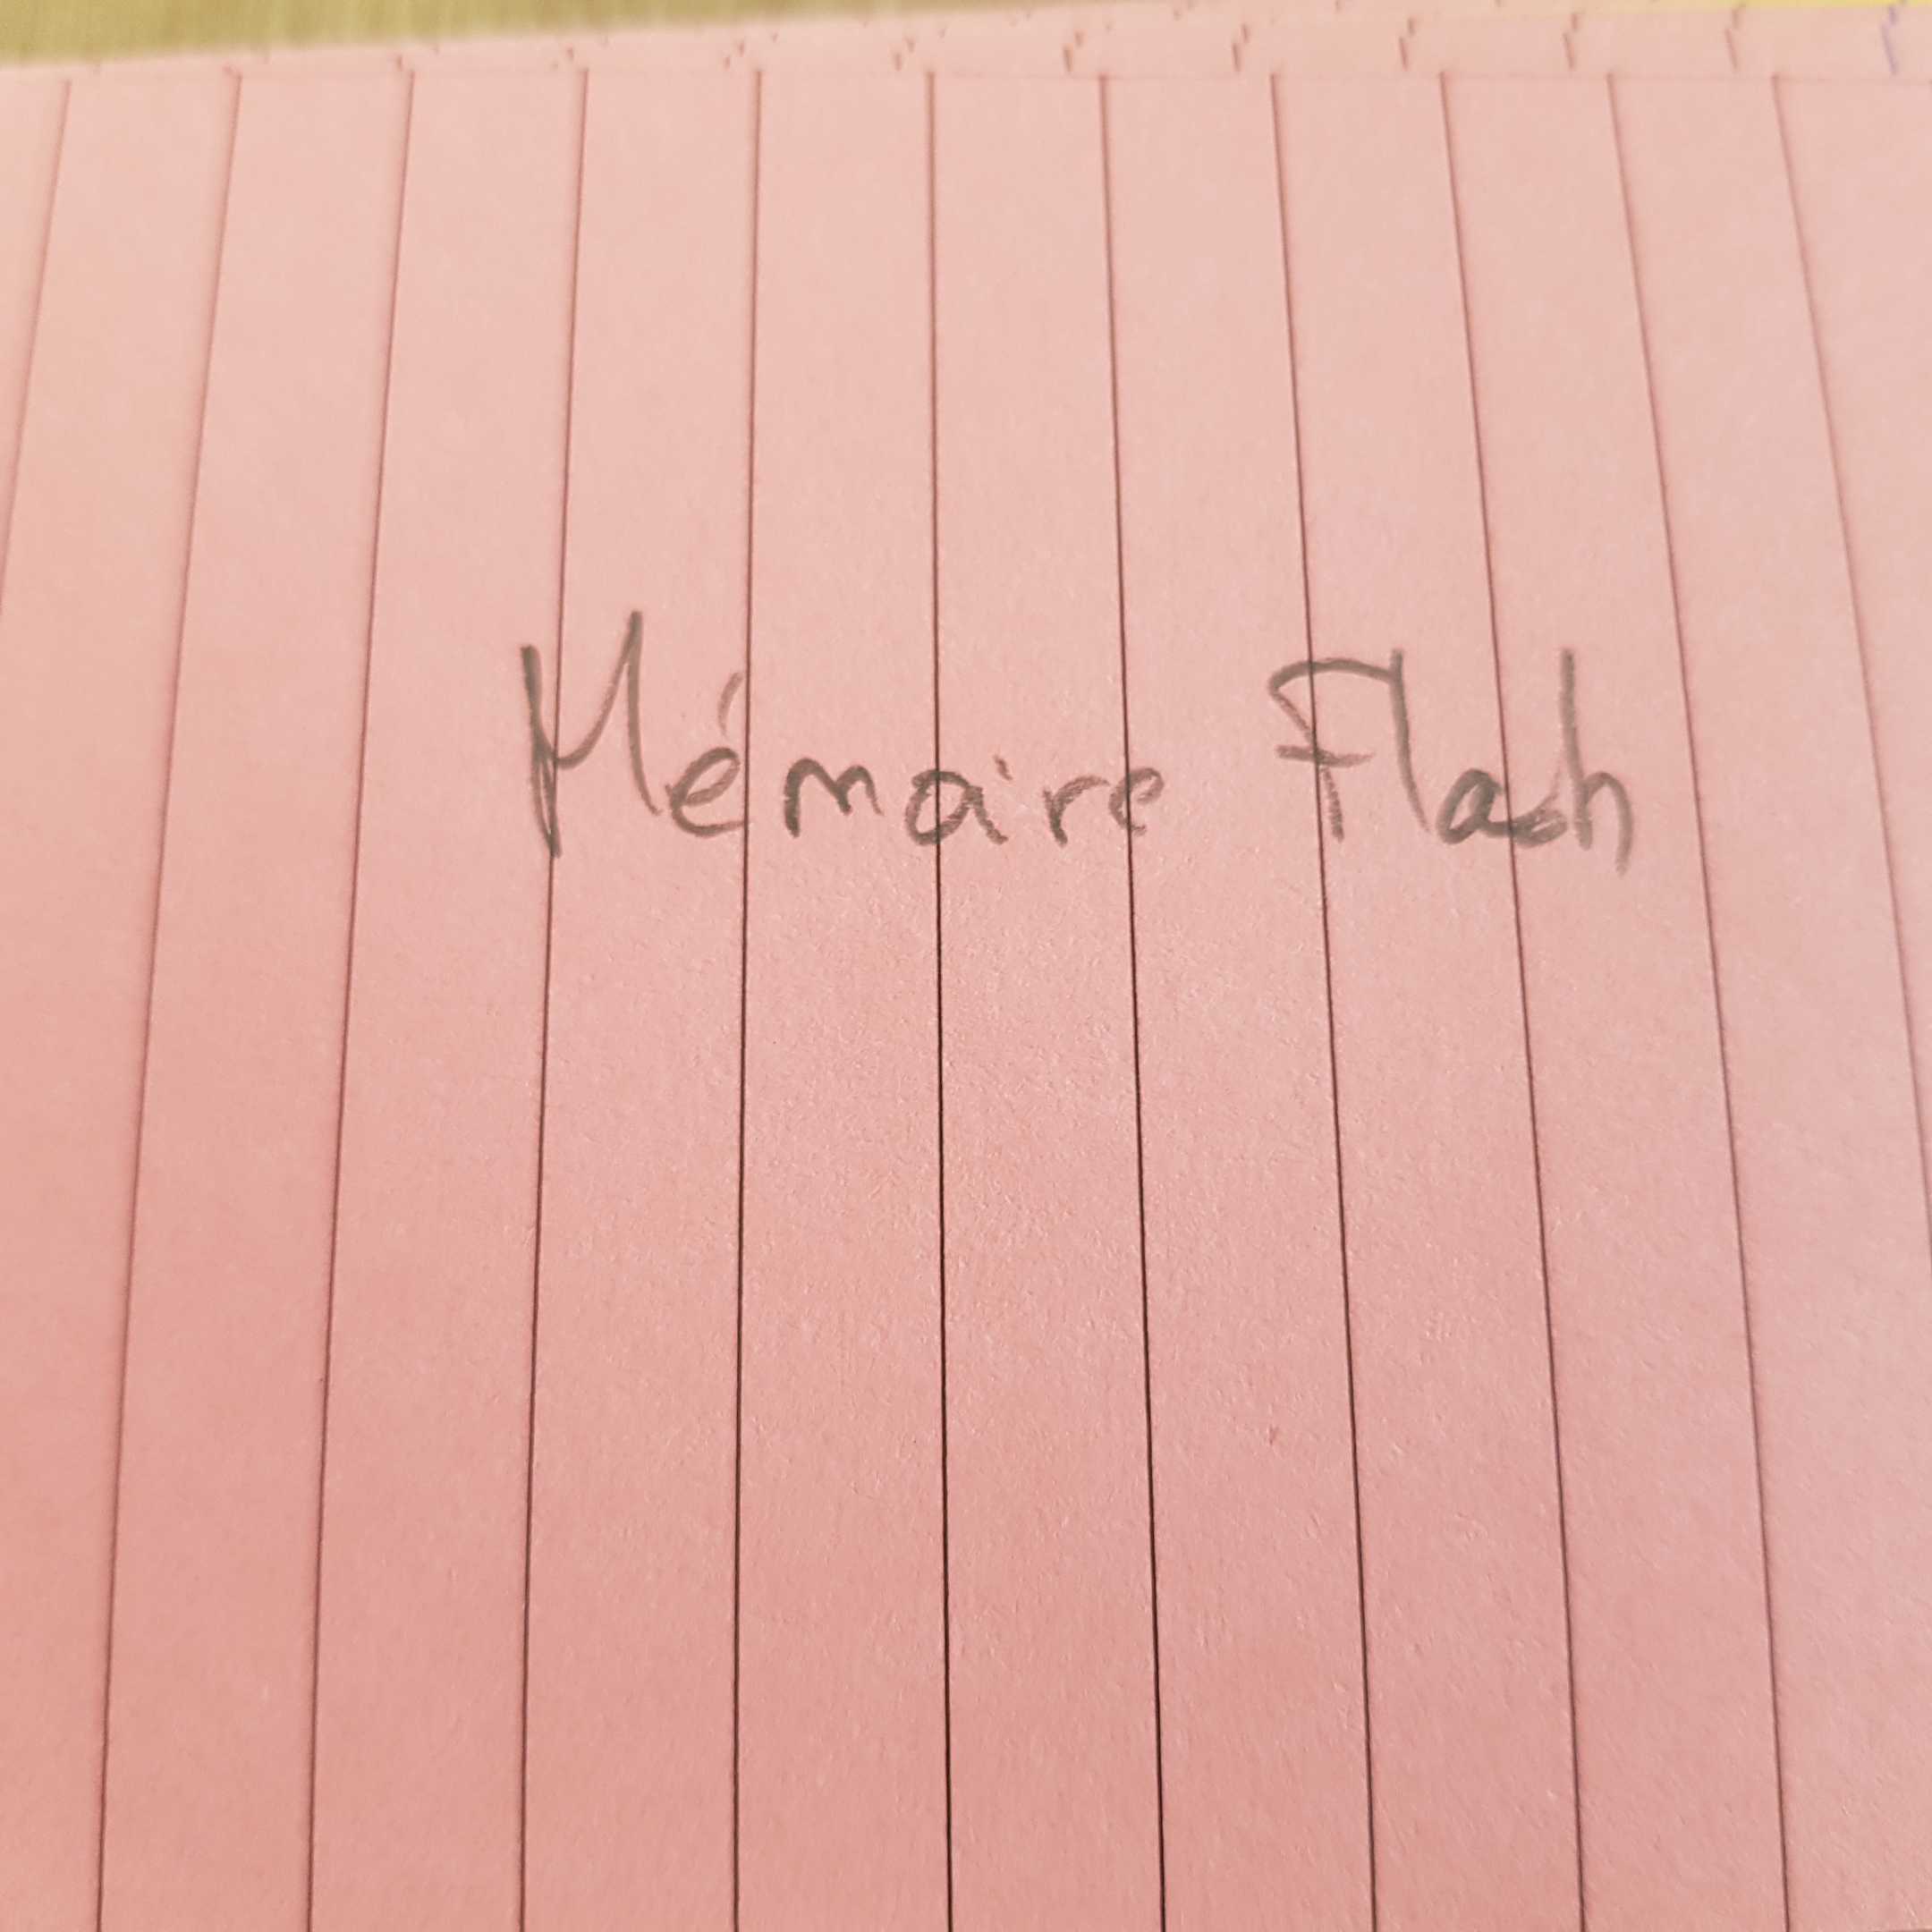 Mémoire Flash